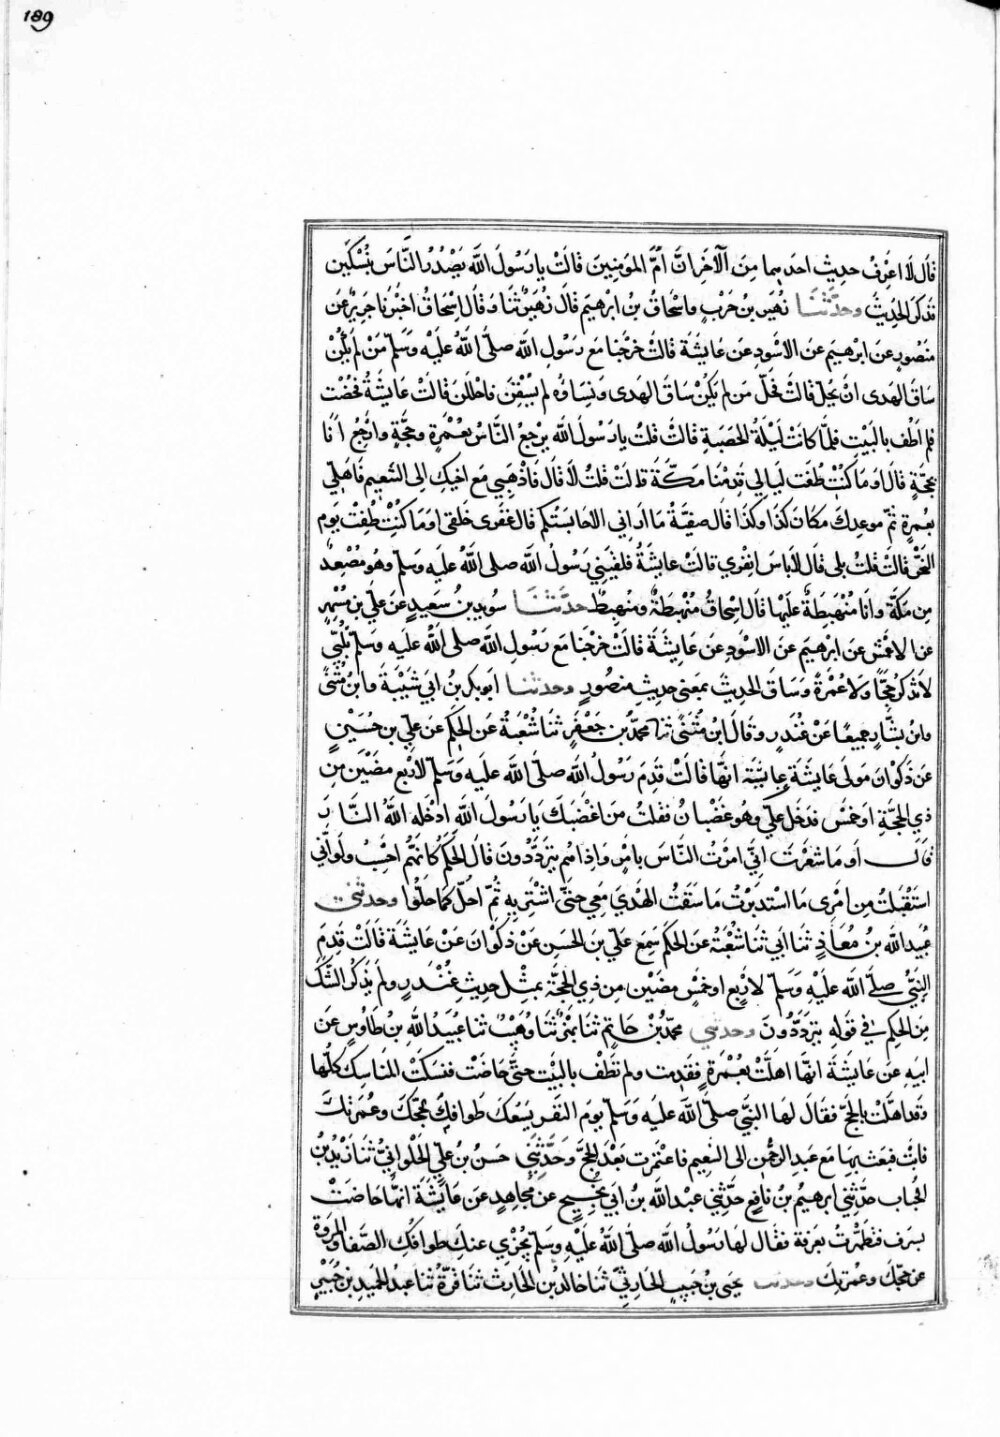 189
قَالَ لَا اعْرِفُ حديث احدهما مِنَ الْآخَرِ انَّ امَّ المؤمِنِينَ قالتْ يا رَسُولَ اللَّه يَصْدُرُ النَّاسُ بِنُسُكَيْنِ
فَذَكَرَ الحَدِيثَ وحدَّثَنَا زُهَيْر بن حَرْبٍ واسْحَاقُ بن ابرهيم قَالَ زُهَيْرٌ ثَنَا وَقَالَ اِسْحَاقُ اخْبَرَنَا جَرِيرٌ عَن
مَنصُورٍ عَن ابرهيمَ عَن الاسْودِ عَن عَايشَةَ قالتْ خَرَجْنا مَعَ رَسُولِ اللَّه صلَّى اللَّهُ عَلَيْهِ وَسَلَّم مَنْ لم يَكُنْ
سَاقَ الهَدى انْ يَحِلّ قَالَتْ فَحَلَّ مَن لم يَكُنْ سَاقَ الهَدى وَنِسَاؤُه لم يَسُقْنَ فَاحْلَلْنَ قَالَتْ عَايِشَةُ فَحِضْت
فلم اَطُفْ بِالبَيْتِ فلَمَّا كَانَتْ لَيْلَةُ الحَصْبَةِ قَالَتْ قُلْتُ يا رَسُولَ اللَّه يَرْجِعُ النَّاسُ بِعُمْرةٍ وحَجَّةٍ وارْجِعُ اَنَا
بِحَجَّةٍ قَالَ اوَ مَا كُنْتِ طُفْتِ لَيَالِي قَدِمْنَا مَكّةَ قَالَتْ قُلْتُ لَا قَالَ فَاذْهَبِي مَعَ اخيكِ الى التَّنعِيم فَاَهِلِّي
بِعُمرةٍ ثمّ موعِدكِ مَكَانَ كَذَا وكَذَا قَالَ صفِيَّةُ مَا ارَاني الا حَابِسَتكم قال عَقرى حَلقى اوَ مَا كُنْتِ طُفْتِ يَوم
النَّحْرِ قَالَتْ قُلْتُ بلى قَالَ لَا باسَ اِنْفِري قالتْ عايشَةُ فلقيَنِي رَسُولُ اللَّه صلى اللَّهُ عليه وَسلَّم وهُو مُصْعِدٌ
مِن مَكّةَ وانَا مُنْهَبِطَةٌ عَلَيْهَا قَالَ اِسْحَاقُ مُنْهَبِطَةٌ ومُنْهَبِطٌ حدَّثَنَا سُوَيد بنُ سَعِيدٍ عَن عَلي بن مُسْهِرٍ
عَن الاعمَشِ عَن ابرهيمَ عَن الاسْودِ عَن عَايشَةَ قالتْ خَرَجْنَا مَعَ رَسُولِ اللَّه صلى اللَّهُ عليه وَسلَّم نُلَبِّي
لَا نَذْكُرُ حَجًّا وَلَا عُمْرَةً وَسَاقَ الحَدِيثَ بمَعنى حَدِيثِ مَنصُورٍ وحدثنا ابوبكر بنُ ابي شَيْبَةَ وابن مُثَنًّى
وابنُ بَشَّارٍ جَميعًا عَنْ غُنْدَرٍ وقَالَ ابْن مُثَنًّى ثنا محمّدُ بن جَعْفَرٍ ثَنَا شُعْبَةُ عَن الحَكم عَن عَلِيّ بن حُسَيْنٍ
عَن ذَكْوَانَ مَولى عَايشَةَ عايشَة انَّها قالتْ قَدِمَ رَسُولُ اللَّه صلى اللَّه عليه وَسلَّم لارْبع مَضَيْنَ مِن
ذي الحَجَّةِ اوخَمْسٍ فَدَخَل علَيَّ وهُو غَضْبَانُ فَقلتُ مَنَ اغْضَبَكَ يا رَسُولَ اللَّهِ ادْخَله اللَّهُ النَّار
قَالَ اَو مَا شَعَرْتِ انِّي امَرْتُ النَّاسَ باَمْرٍ وَاِذَا هُم يَتَرَدَّدُونَ قالَ الحَكَمُ كَاَنَّهُم احْسِبُ ولَو انِّي
اسْتَقْبلتُ مِن امْرِي مَا اسْتدبَرْتُ مَا سُقْتُ الهَدْيَ مَعِي حتَّى اشْتَرِيهِ ثُمّ احِلّ كَمَا حَلّوا وحدثني
عُبيدُ اللَّه بنُ مُعَاذٍ ثَنَا اَبي ثَنَا شُعْبَةُ عَن الحَكَم سَمِعَ عَلي بنَ الحُسَينِ عَنْ ذكْوانَ عَنْ عَايشَةَ قَالَتْ قَدِمَ
النَّبِيُّ صلّى اللَّه عَلَيْهِ وَسَلَّم لارْبَعٍ اوخَمْسٍ مَضَيْنَ مِن ذِي الحَجَّة بِمِثْلِ حَدِيثِ غُنْدَرٍ ولَم يَذكُر الشَّكَّ
مِنَ الحَكمِ في قَولِهِ يَتَرَدَّدُونَ وحدثني محمّدُ بنُ حَاتِمٍ ثَنَا بَهْزٌ ثَنَا وُهَيْبٌ ثَنا عُبَيدُ اللَّهِ بن طَاوُسٍ عَن
ابيهِ عَن عَايشَةَ انهَّا اهَلَّتْ بِعُمْرَةٍ فقَدِمت ولم تَطُفْ بِالبَيْتِ حتَّى حَاضَتْ فنسَكَتْ المَنَاسِكَ كلَّها
وقد اهلَّتْ بِالحَجّ فقَالَ لهَا النَّبِيُّ صلى اللَّه عليه وَسَلَّم يَومَ النَّفرِ يَسَعُكِ طَوافكِ لحجّكِ وعُمرَتِكِ
فابَتْ فَبعَثَ بِهَا مَعَ عَبدِ الرَّحْمنِ الى التنعيم فاعْتَمَرت بَعْدَ الحَجِّ وَحَدَّثَنِي حَسَنُ بن عَلِيٍّ الحُلْوَانِيُّ ثَنَا زَيْدُ بنُ
الحُبَاب حدَّثنِي ابرهيمُ بن نَافِعٍ حدَّثَني عَبْد اللَّه بن ابي نَجِيح عَن مُجَاهِدٍ عَن عَايشَةَ انهَّا حَاضَتْ
بِسَرِفَ فتَطَهَّرتْ بِعَرَفَةَ فَقَال لهَا رَسُولُ اللَّه صلى اللَّهُ عَلَيْهِ وَسَلَّم يُجْزِي عنكِ طوافُكِ الصّفَا والمَروَةِ
عَن حجّكِ وعُمرتِكِ وحدثنا يحيى بن حَبِيبٍ الحَارِثيّ ثَنَا خالد بن الحَارِث ثَنَا قُرَّةُ ثَنا عبدُ الحَمِيد بن جُبَيْرِ